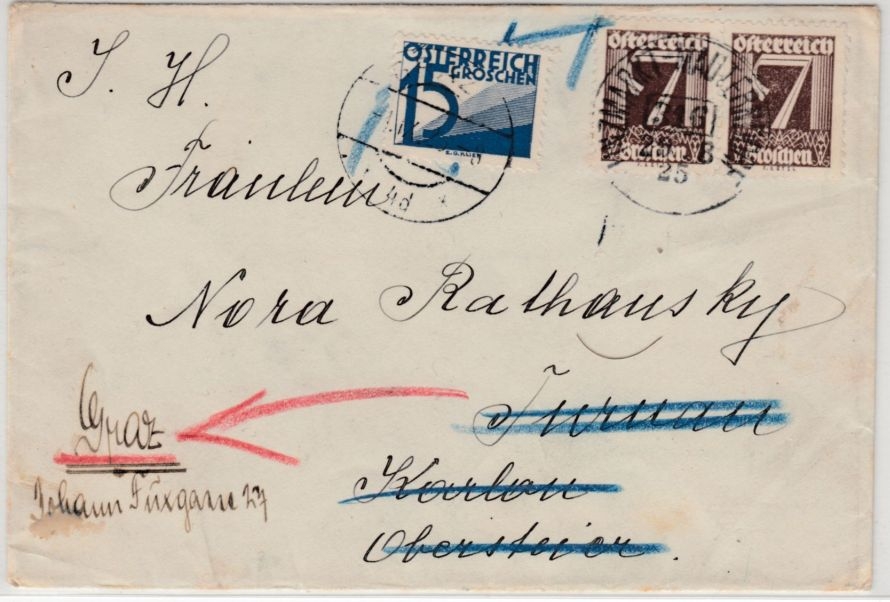 S. H.
ÖSTERREICH
15 GROSCHEN
Österreich
7
Groschen
Österreich
7
Groschen
25
Fräulein
Nora Rathausky
Turnau
Graz
Karlon
Johann Fuxgasse 27
Obersteier.